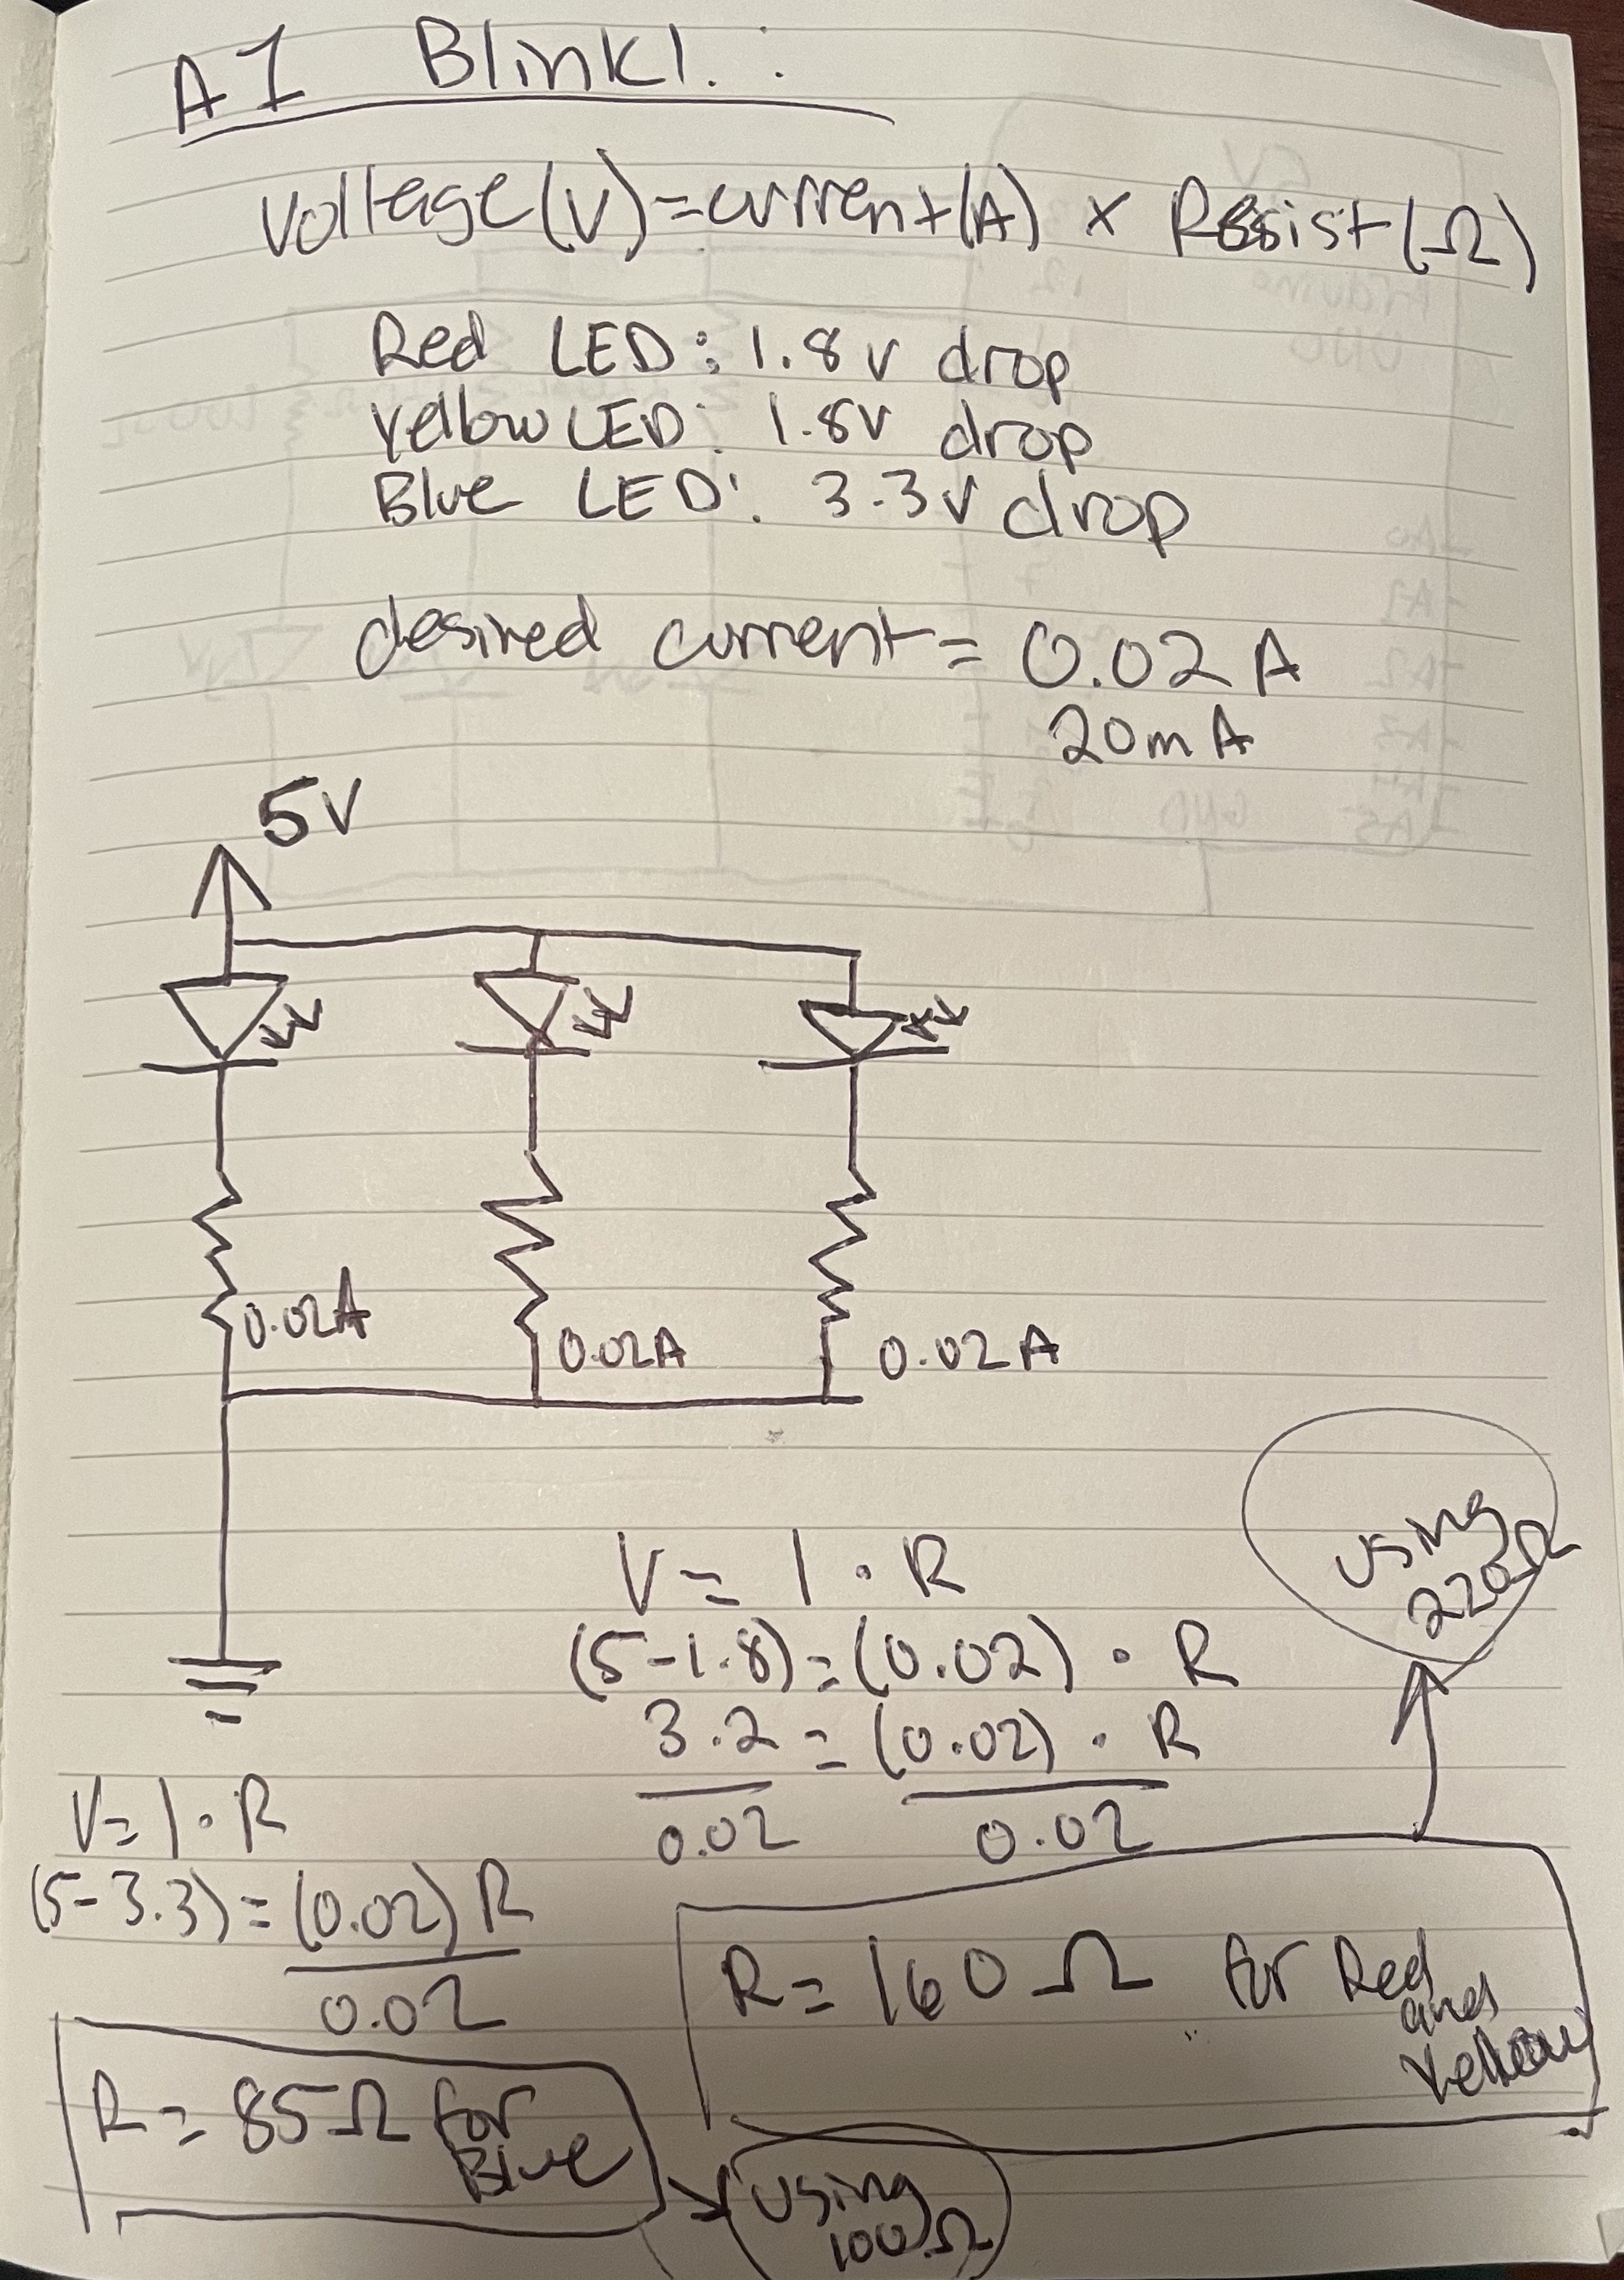 A1 Blink!:
Voltage(V)=current(A) × Resist(Ω)
Red LED: 1.8v drop
Yellow LED: 1.8v drop
Blue LED: 3.3v drop
desired current = 0.02 A
20mA
5V
0.02A
0.02A
0.02A
using
220Ω
V = I · R
(5-1.8) = (0.02) · R
3.2 = (0.02) · R
0.02 0.02
V= I · R
(5-3.3) = (0.02) R
0.02
R= 160 Ω for Red
and
Yellow
R= 85Ω for
Blue
using
100Ω